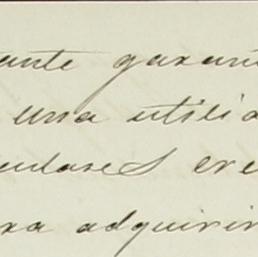 ante garan
una utilid
culares cre
ra adquirir